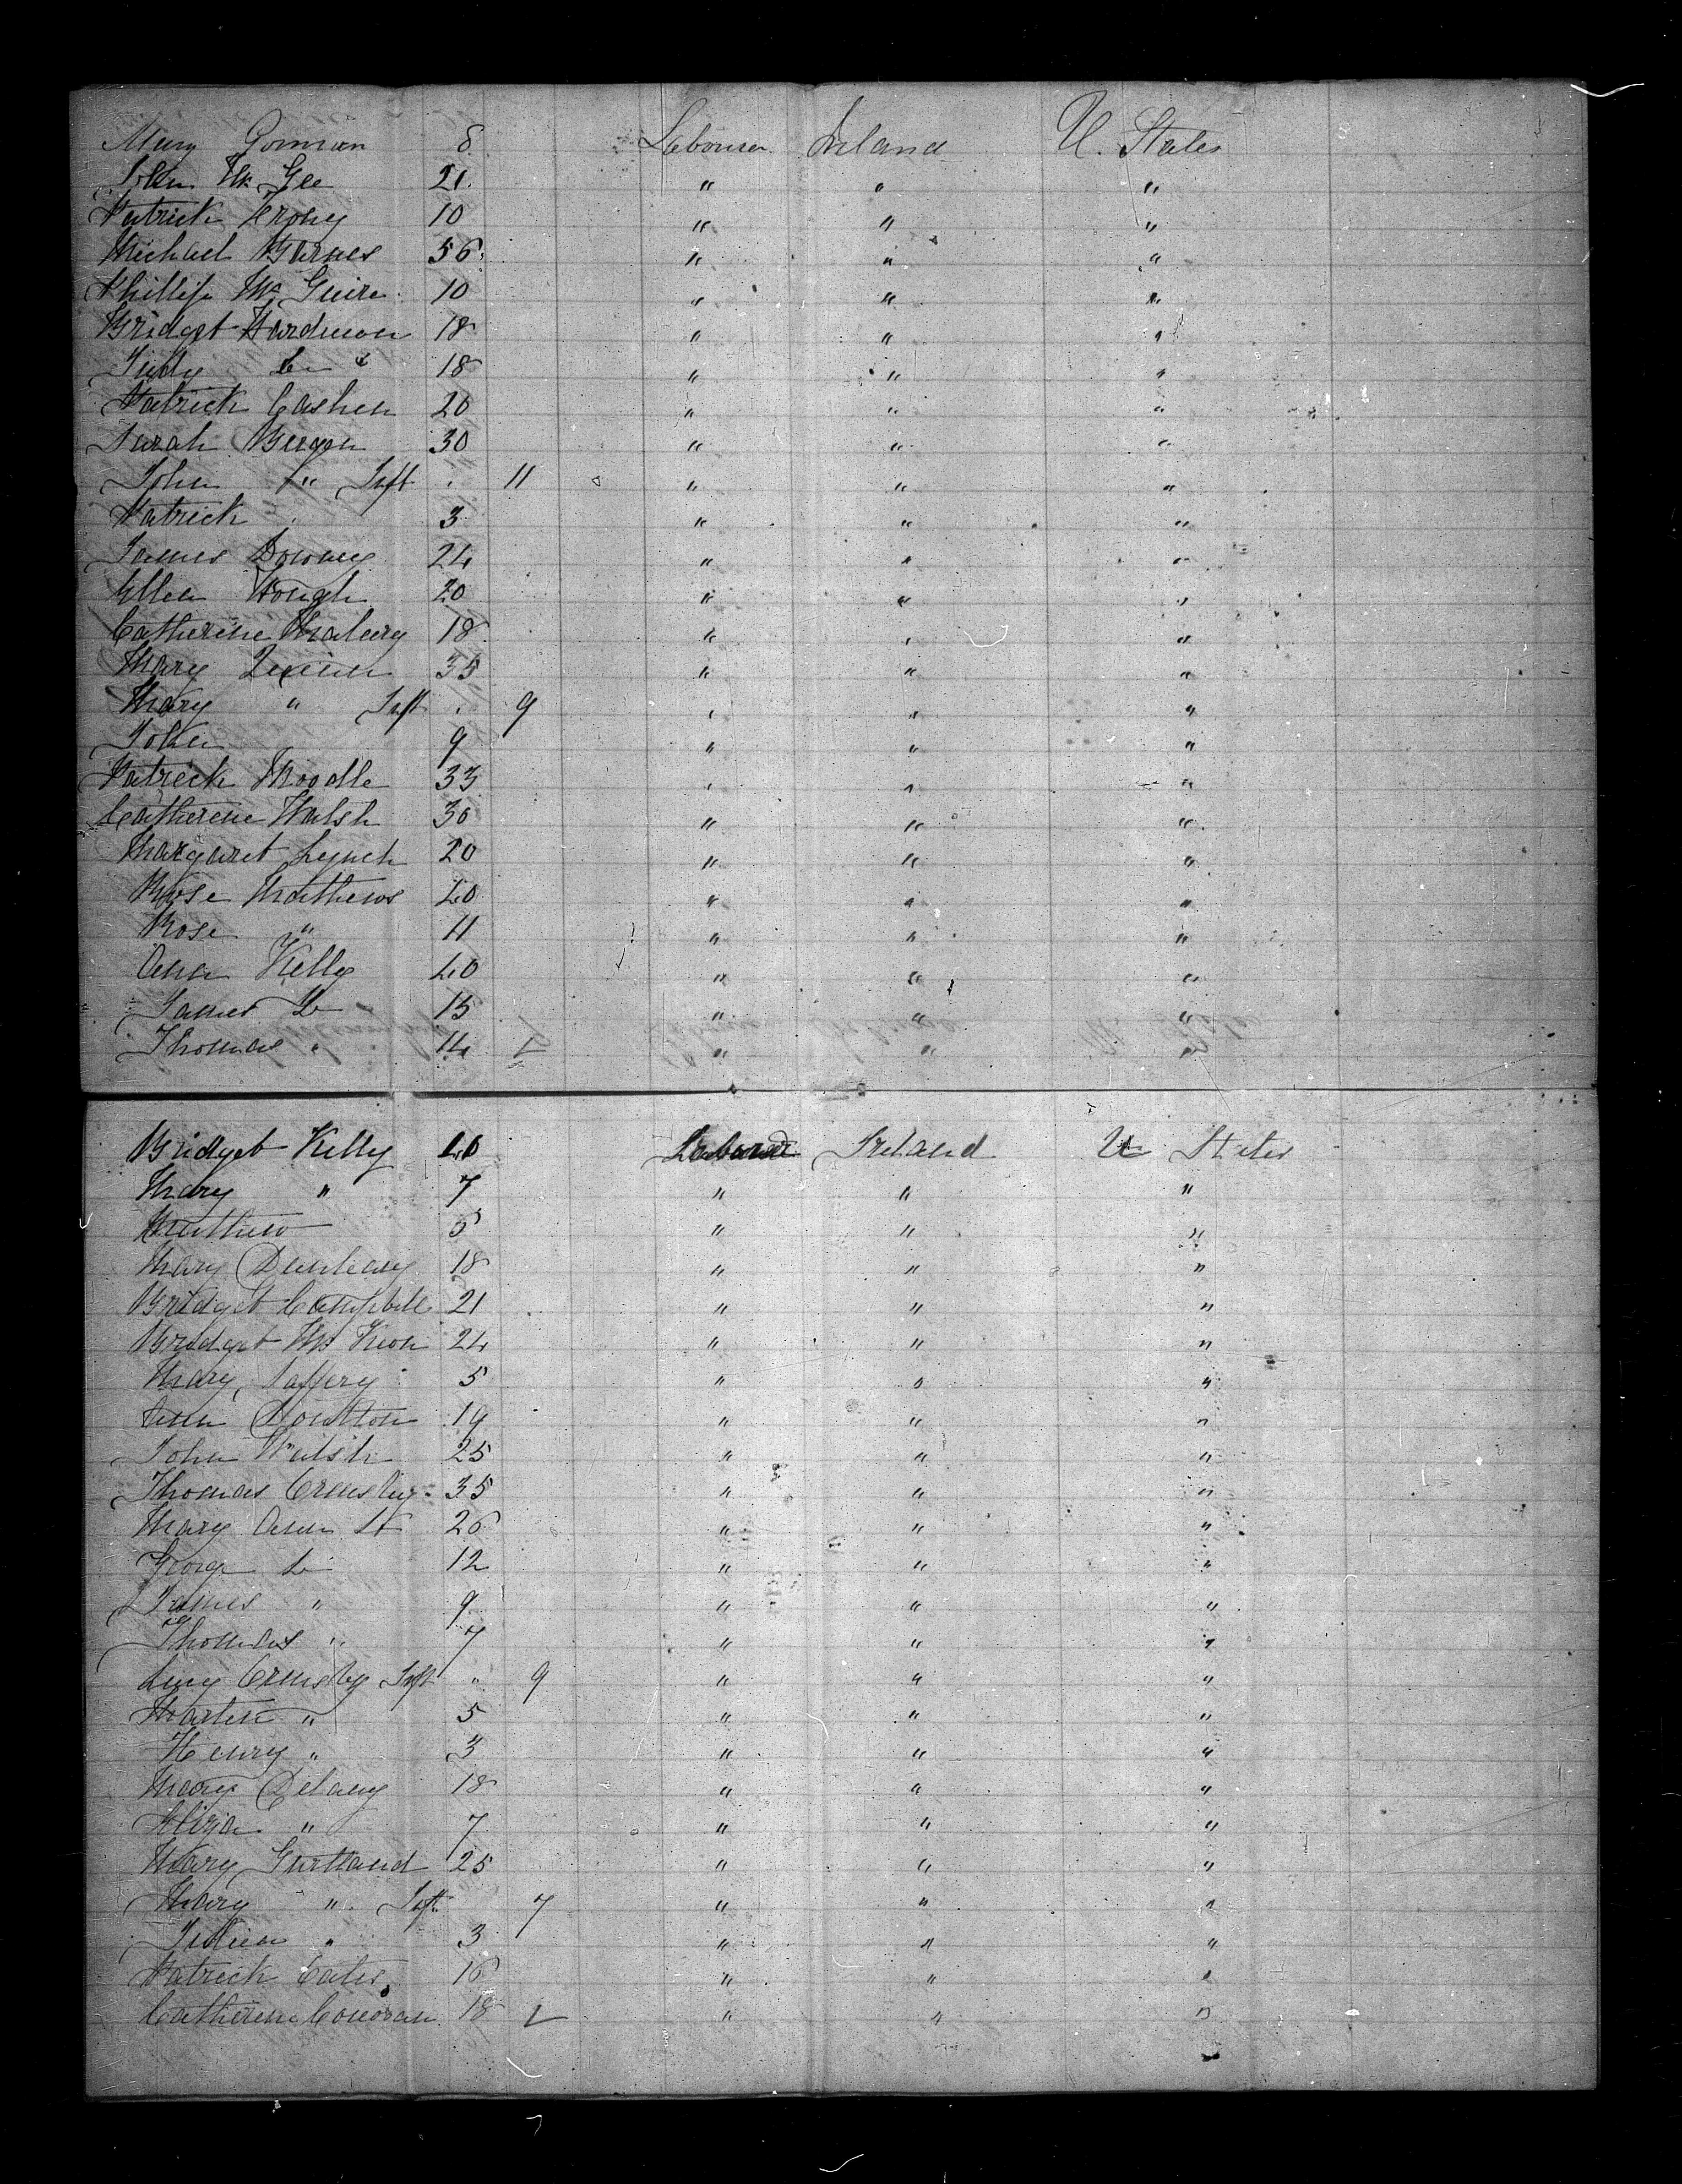 Mary Gorman 8 Labourer Ireland U. States
John Mc Gee 21 " " "
Patrick 10 " " "
Michael Barnes 56 " " "
Phillip Mc Guire 10 " " "
Bridget Hardmon 18 " " "
Judy Do " 18 " " "
Patrick Cashen 20 " " "
Sarah Bergen 30 " " "
John " Inft " 11 " " "
Patrick " 3 " " "
James Downey 24 " " "
Ellen Hough 20 " " "
Catherine 18 " " "
Mary 35 " " "
Mary " Inft " 9 " " "
John 9 " " "
Patrick Moodle 33 " " "
Catherine Walsh 30 " " "
Margaret Lynch 20 " " "
Rose Mathews 40 " " "
Rose " 11 " " "
Ann Kelly 40 " " "
James Do 15 " " "
Thomas " 14 " " "
Bridget Kelly 10 Labourer Ireland U States
Mary " 7 " " "
Matthew 5 " " "
Mary Dunleavy 18 " " "
Bridget Campbell 21 " " "
Bridget Mc Keon 24 " " "
Mary Saffery 5 " " "
Ann 19 " " "
John Walsh 25 " " "
Thomas Ormsby 35 " " "
Mary Ann Do 26 " " "
George Do 12 " " "
James " 9 " " "
Thomas " 7 " " "
Lucy Ormsby Inft " 9 " " "
Martin " 5 " " "
Henry " 3 " " "
Mary Delany 18 " " "
Eliza " 7 " " "
Mary Gurtland 25 " " "
Mary " Inft 7 " " "
Julia " 3 " " "
Patrick Cates 16 " " "
Catherine Conoran 18 " " "